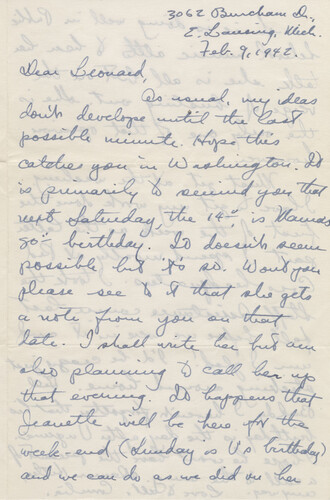 3062 Burcham Dr.,
E. Lansing, Mich.
Feb. 9, 1942.
Dear Leonard,
As usual, my ideas
don't develope until the last
possible minute. Hope this
catches you in Washington. It
is primarily to remind you that
next Saturday, the 14th, is Mama's
80th birthday. It doesn't seem
possible but it's so. Won't you
please see to it that she gets
a note from you on that
date. I shall write her but am
also planning to call her up
that evening. It happens that
Jeanette will be here for the
week-end (Sunday is V's birthday)
and we can do as we did on her